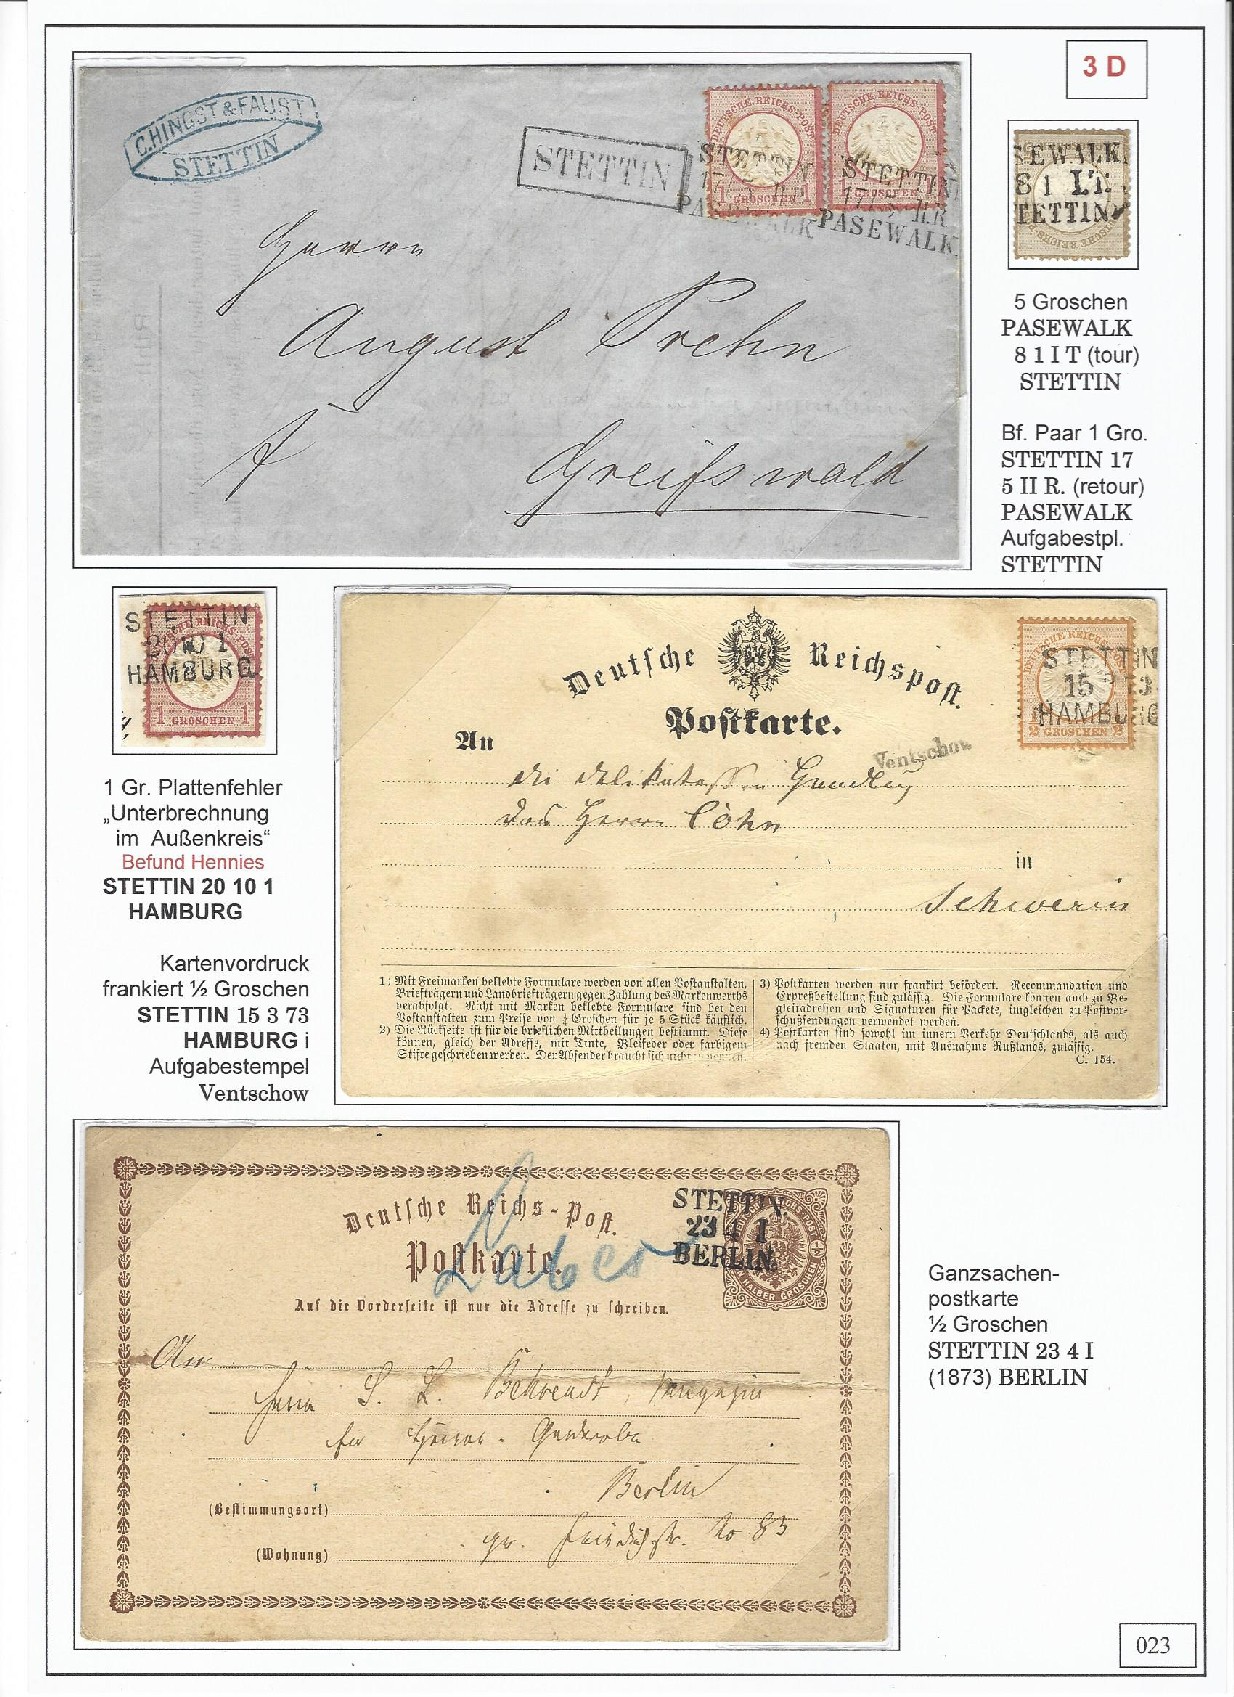 3 D
C. HINGST & FAUST
STETTIN
STETTIN
DEUTSCHE REICHS-POST
1 GROSCHEN 1
STETTIN
PASEWALK
DEUTSCHE REICHS-POST
GROSCHEN
STETTIN
17 5 II.R.
PASEWALK
Herrn
August Prehn
Greifswald
SEWALK
8 1 I.T.
TETTIN
5 Groschen
PASEWALK
8 1 I T (tour)
STETTIN
Bf. Paar 1 Gro.
STETTIN 17
5 II R. (retour)
PASEWALK
Aufgabestpl.
STETTIN
STETTIN
20 10 1
HAMBURG
1 GROSCHEN 1
1 Gr. Plattenfehler
„Unterbrechnung
im Außenkreis“
Befund Hennies
STETTIN 20 10 1
HAMBURG
Kartenvordruck
frankiert ½ Groschen
STETTIN 15 3 73
HAMBURG i
Aufgabestempel
Ventschow
Deutsche Reichspost.
Postkarte.
STETTIN
15 3
HAMBURG
½ GROSCHEN ½
Ventschow
An
die Delikatessen Handlung
des Herrn Cohn
in
Schwerin
1) Mit Freimarken beklebte Formulare werden von allen Postanstalten,
Briefträgern und Landbriefträgern gegen Zahlung des Markenwerths
verabfolgt. Nicht mit Marken beklebte Formulare sind bei den
Postanstalten zum Preise von ½ Groschen für je 5 Stück käuflich.
2) Die Rückseite ist für die brieflichen Mittheilungen bestimmt. Diese
können, gleich der Adresse, mit Tinte, Bleifeder oder farbigem
Stifte geschrieben werden. Der Absender braucht sich nicht zu nennen.
3) Postkarten werden nur frankirt befördert. Recommandation und
Expreßbestellung sind zulässig. Die Formulare können auch zu Be-
gleitadressen und Signaturen für Packete, imgleichen zu Postvor-
schußsendungen verwendet werden.
4) Postkarten sind sowohl im innern Verkehr Deutschlands, als auch
nach fremden Staaten, mit Ausnahme Rußlands, zulässig.
C. 154.
Deutsche Reichs-Post.
Postkarte.
Auf die Vorderseite ist nur die Adresse zu schreiben.
STETTIN.
23 4 I
BERLIN.
HALBER GROSCHEN
An
Herrn S. L. Behrendt,
Berlin
(Bestimmungsort)
gr. Friedrichstr. No 85
(Wohnung)
Ganzsachen-
postkarte
½ Groschen
STETTIN 23 4 I
(1873) BERLIN
023